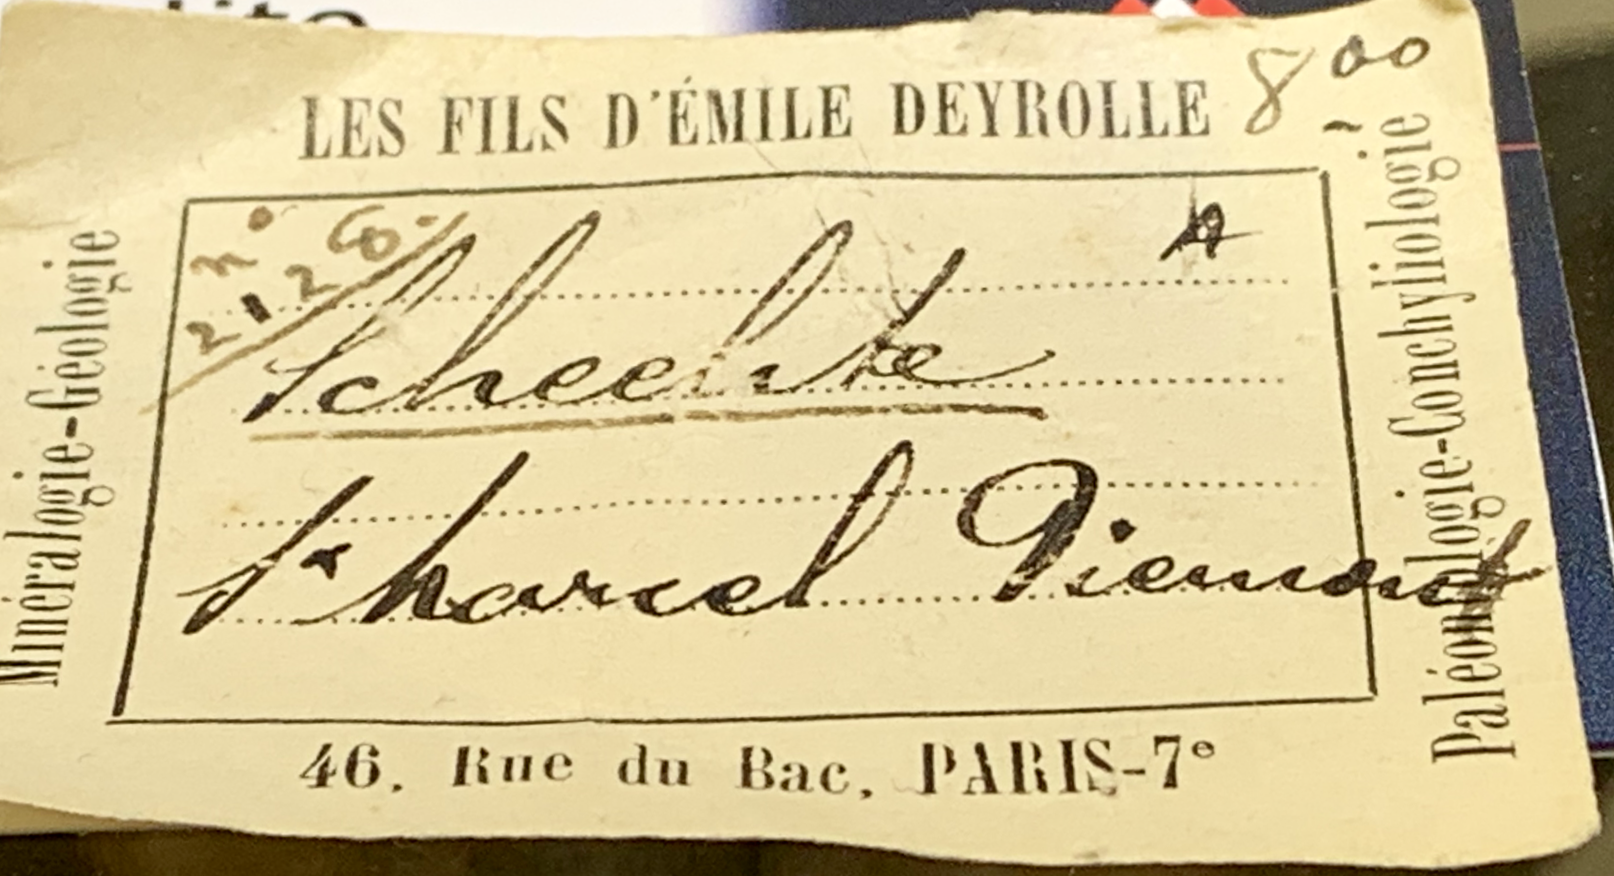 LES FILS D'ÉMILE DEYROLLE
8 00
Minéralogie-Géologie
nº
Scheelite
St Marcel Piemont
Paléontologie-Conchyliologie
46, Rue du Bac, PARIS-7e